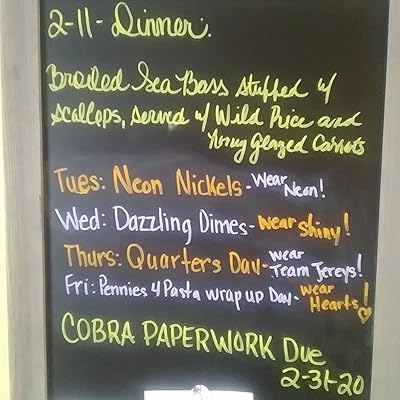 2-11- Dinner.
Broiled Sea Bass stuffed w/
scallops, served w/ Wild Rice and
Honey Glazed Carrots
Tues: Neon Nickels - Wear Neon!
Wed: Dazzling Dimes - wear shiny!
Thurs: Quarters Day - wear Team Jereys!
Fri: Pennies 4 Pasta wrap up Day - wear Hearts!
COBRA PAPERWORK Due
2-31-20